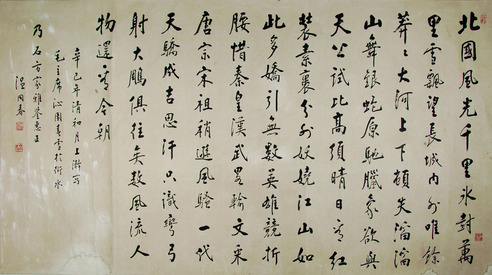 北國風光千里冰封萬
里雪飄望長城內外唯餘
莽々大河上下頓失滔滔
山舞銀蛇原馳臘象欲與
天公試比高須晴日看紅
裝素裹分外妖嬈江山如
此多嬌引無數英雄競折
腰惜秦皇漢武略輸文采
唐宗宋祖稍遜風騷一代
天驕成吉思汗只識彎弓
射大鵰俱往矣數風流人
物還看今朝
辛巳年清和月上澣寫
毛主席沁園春雪於衡水
乃石方家雅鑒惠正
溫同春